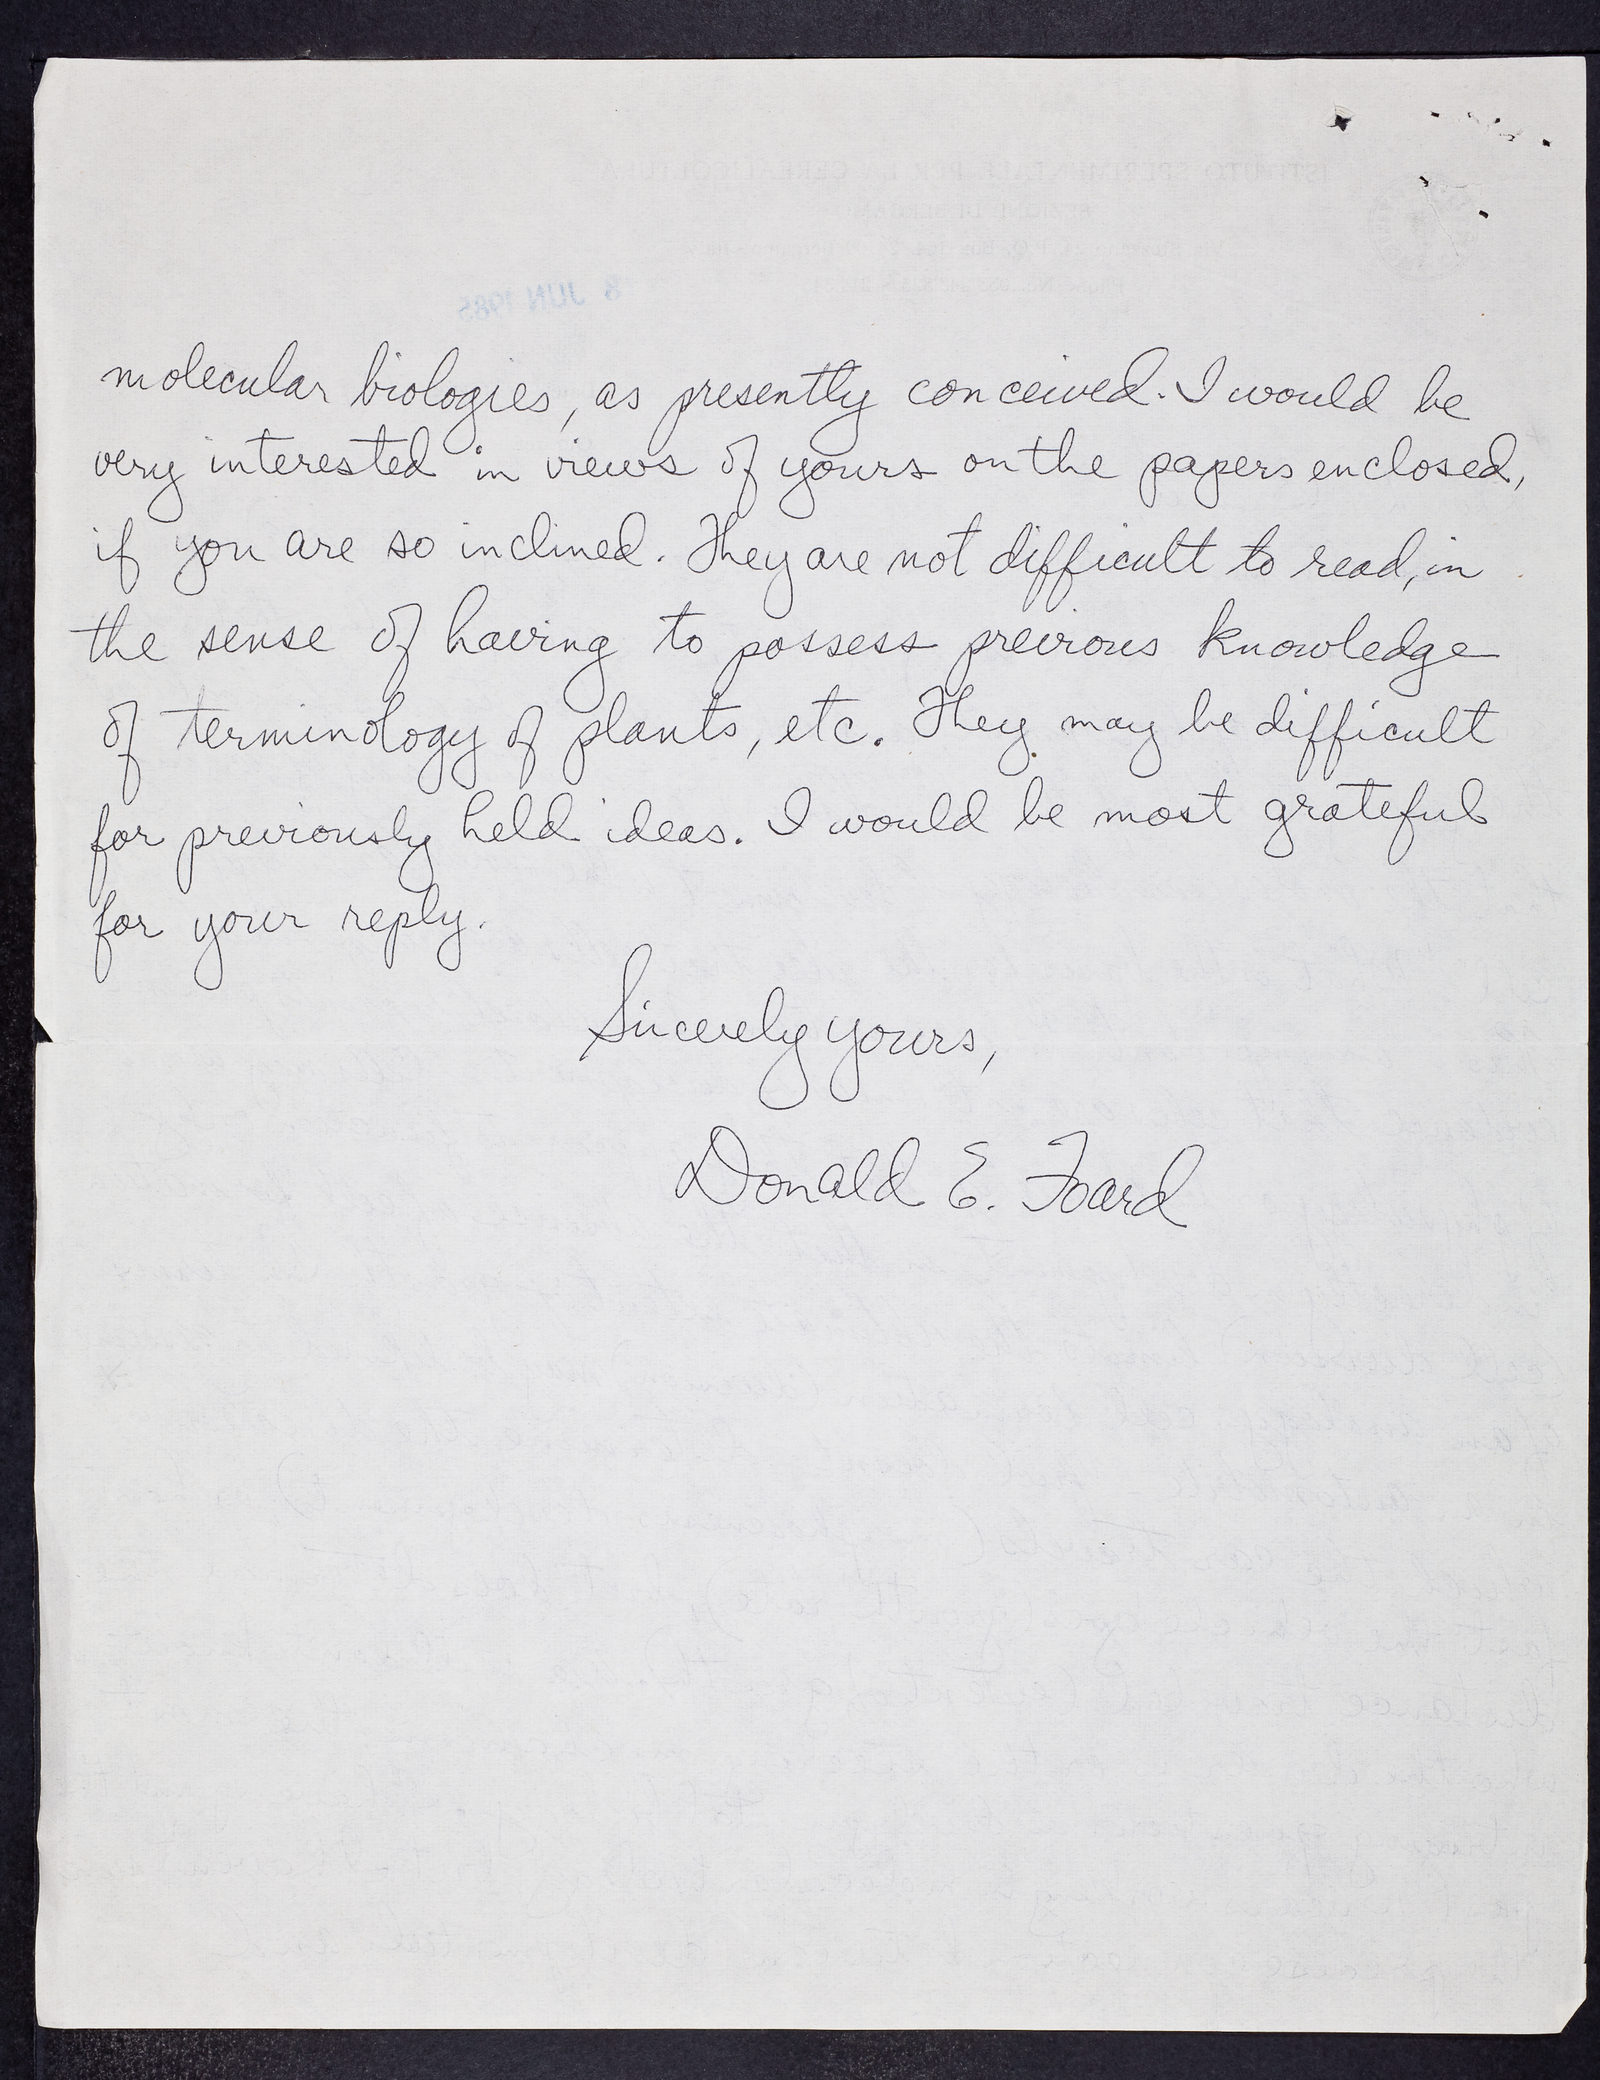 molecular biologies, as presently conceived. I would be
very interested in views of yours on the papers enclosed,
if you are so inclined. They are not difficult to read, in
the sense of having to possess previous knowledge
of terminology of plants, etc. They may be difficult
for previously held ideas. I would be most grateful
for your reply.
Sincerely yours,
Donald E. Foard